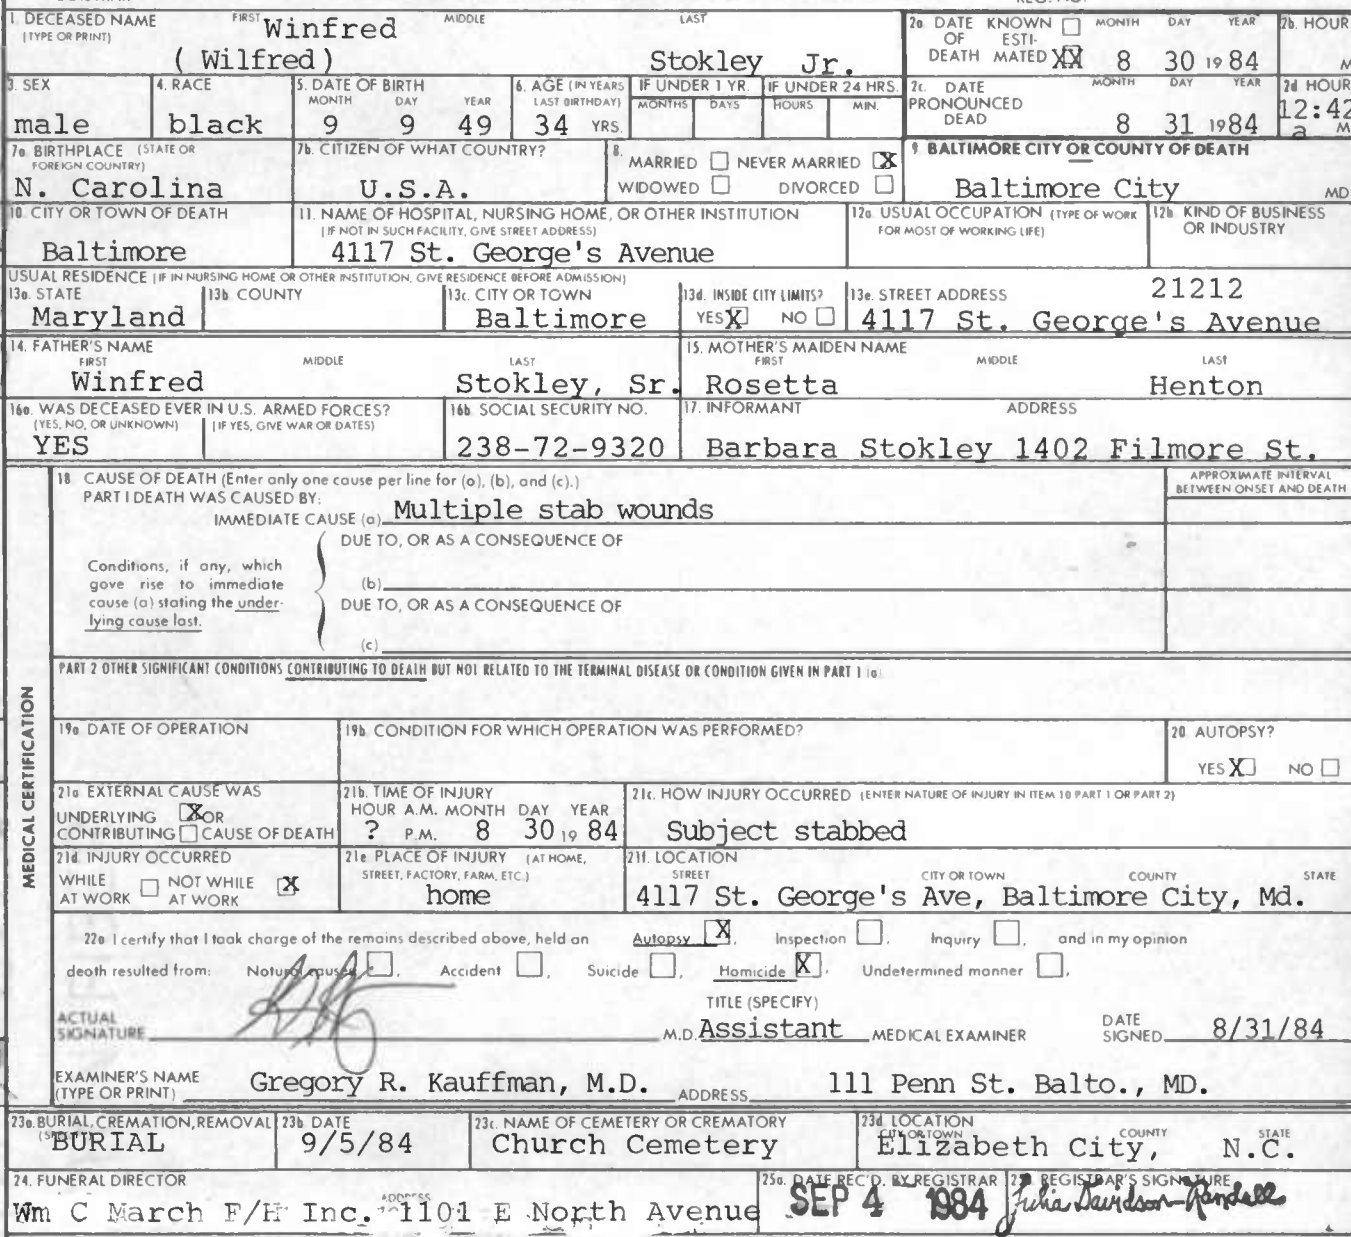 1. DECEASED NAME FIRST MIDDLE LAST
(TYPE OR PRINT)
Winfred
(Wilfred) Stokley Jr.
2a. DATE KNOWN ☐ MONTH DAY YEAR
OF ESTI-
DEATH MATED XX 8 30 1984
2b. HOUR
M
3. SEX
male
4. RACE
black
5. DATE OF BIRTH
MONTH DAY YEAR
9 9 49
6. AGE (IN YEARS
LAST BIRTHDAY)
34 YRS.
IF UNDER 1 YR.
MONTHS DAYS
IF UNDER 24 HRS.
HOURS MIN.
2c. DATE MONTH DAY YEAR
PRONOUNCED
DEAD 8 31 1984
2d HOUR
12:42
a M
7a. BIRTHPLACE (STATE OR
FOREIGN COUNTRY)
N. Carolina
7b. CITIZEN OF WHAT COUNTRY?
U.S.A.
8.
MARRIED ☐ NEVER MARRIED X
WIDOWED ☐ DIVORCED ☐
9. BALTIMORE CITY OR COUNTY OF DEATH
Baltimore City MD
10. CITY OR TOWN OF DEATH
Baltimore
11. NAME OF HOSPITAL, NURSING HOME, OR OTHER INSTITUTION
(IF NOT IN SUCH FACILITY, GIVE STREET ADDRESS)
4117 St. George's Avenue
12a. USUAL OCCUPATION (TYPE OF WORK
FOR MOST OF WORKING LIFE)
12b. KIND OF BUSINESS
OR INDUSTRY
USUAL RESIDENCE (IF IN NURSING HOME OR OTHER INSTITUTION, GIVE RESIDENCE BEFORE ADMISSION)
13a. STATE
Maryland
13b. COUNTY
13c. CITY OR TOWN
Baltimore
13d. INSIDE CITY LIMITS?
YES X NO ☐
13e. STREET ADDRESS 21212
4117 St. George's Avenue
14. FATHER'S NAME
FIRST MIDDLE LAST
Winfred Stokley, Sr.
15. MOTHER'S MAIDEN NAME
FIRST MIDDLE LAST
Rosetta Henton
16a. WAS DECEASED EVER IN U.S. ARMED FORCES?
(YES, NO, OR UNKNOWN) (IF YES, GIVE WAR OR DATES)
YES
16b. SOCIAL SECURITY NO.
238-72-9320
17. INFORMANT ADDRESS
Barbara Stokley 1402 Filmore St.
MEDICAL CERTIFICATION
18 CAUSE OF DEATH (Enter only one cause per line for (a), (b), and (c).)
PART I DEATH WAS CAUSED BY:
IMMEDIATE CAUSE (a) Multiple stab wounds
APPROXIMATE INTERVAL
BETWEEN ONSET AND DEATH
DUE TO, OR AS A CONSEQUENCE OF
Conditions, if any, which
gave rise to immediate
cause (a) stating the under-
lying cause last.
(b)
DUE TO, OR AS A CONSEQUENCE OF
(c)
PART 2 OTHER SIGNIFICANT CONDITIONS CONTRIBUTING TO DEATH BUT NOT RELATED TO THE TERMINAL DISEASE OR CONDITION GIVEN IN PART 1 (a)
19a DATE OF OPERATION
19b CONDITION FOR WHICH OPERATION WAS PERFORMED?
20 AUTOPSY?
YES X NO ☐
21a EXTERNAL CAUSE WAS
UNDERLYING X OR
CONTRIBUTING ☐ CAUSE OF DEATH
21b. TIME OF INJURY
HOUR A.M. MONTH DAY YEAR
? P.M. 8 30 19 84
21c. HOW INJURY OCCURRED (ENTER NATURE OF INJURY IN ITEM 18 PART 1 OR PART 2)
Subject stabbed
21d INJURY OCCURRED
WHILE ☐ NOT WHILE X
AT WORK AT WORK
21e PLACE OF INJURY (AT HOME,
STREET, FACTORY, FARM, ETC.)
home
21f. LOCATION
STREET CITY OR TOWN COUNTY STATE
4117 St. George's Ave, Baltimore City, Md.
22a I certify that I took charge of the remains described above, held an Autopsy X, Inspection ☐, Inquiry ☐, and in my opinion
death resulted from: Natural causes ☐, Accident ☐, Suicide ☐, Homicide X, Undetermined manner ☐.
ACTUAL
SIGNATURE
TITLE (SPECIFY)
M.D. Assistant MEDICAL EXAMINER
DATE
SIGNED 8/31/84
EXAMINER'S NAME
(TYPE OR PRINT) Gregory R. Kauffman, M.D. ADDRESS 111 Penn St. Balto., MD.
23a. BURIAL, CREMATION, REMOVAL
BURIAL
23b. DATE
9/5/84
23c. NAME OF CEMETERY OR CREMATORY
Church Cemetery
23d. LOCATION
CITY OR TOWN COUNTY STATE
Elizabeth City, N.C.
24. FUNERAL DIRECTOR
ADDRESS
Wm C March F/H Inc. 1101 E North Avenue
25a. DATE REC'D. BY REGISTRAR
SEP 4 1984
REGISTRAR'S SIGNATURE
Julia Davidson-Randall